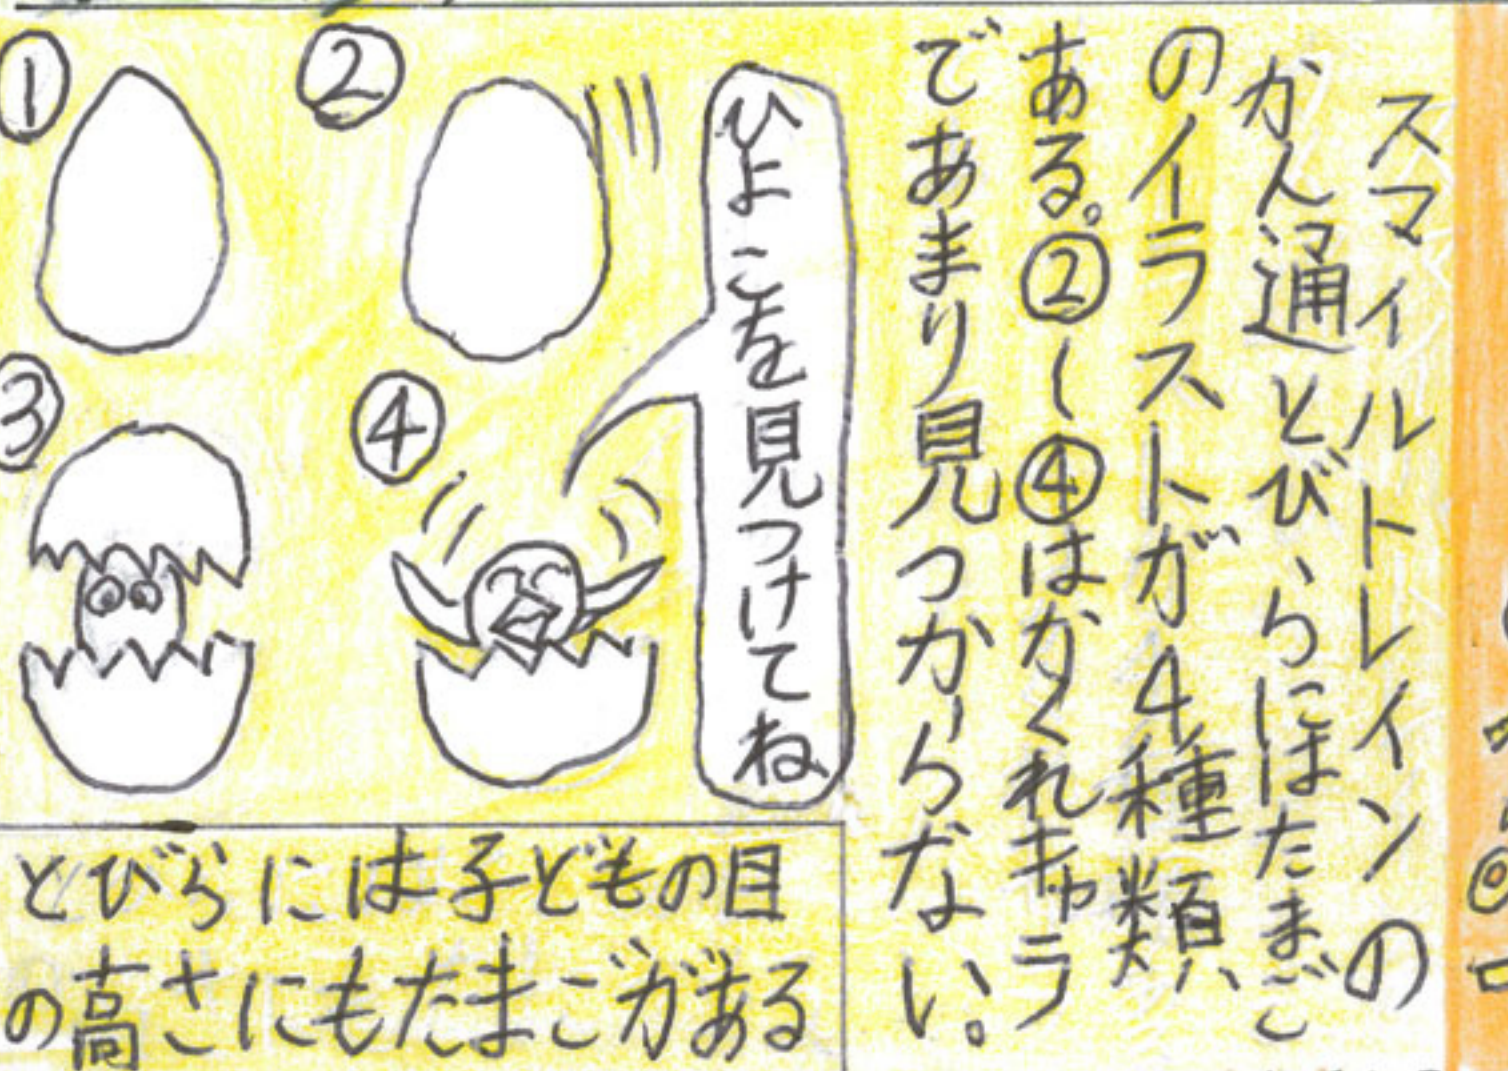 スマイルトレインの
かん通とびらにはたまご
のイラストが4種類
ある。②〜④はかくれキャラ
であまり見つからない。
ひよこを見つけてね
①
②
③
④
とびらには子どもの目
の高さにもたまごがある